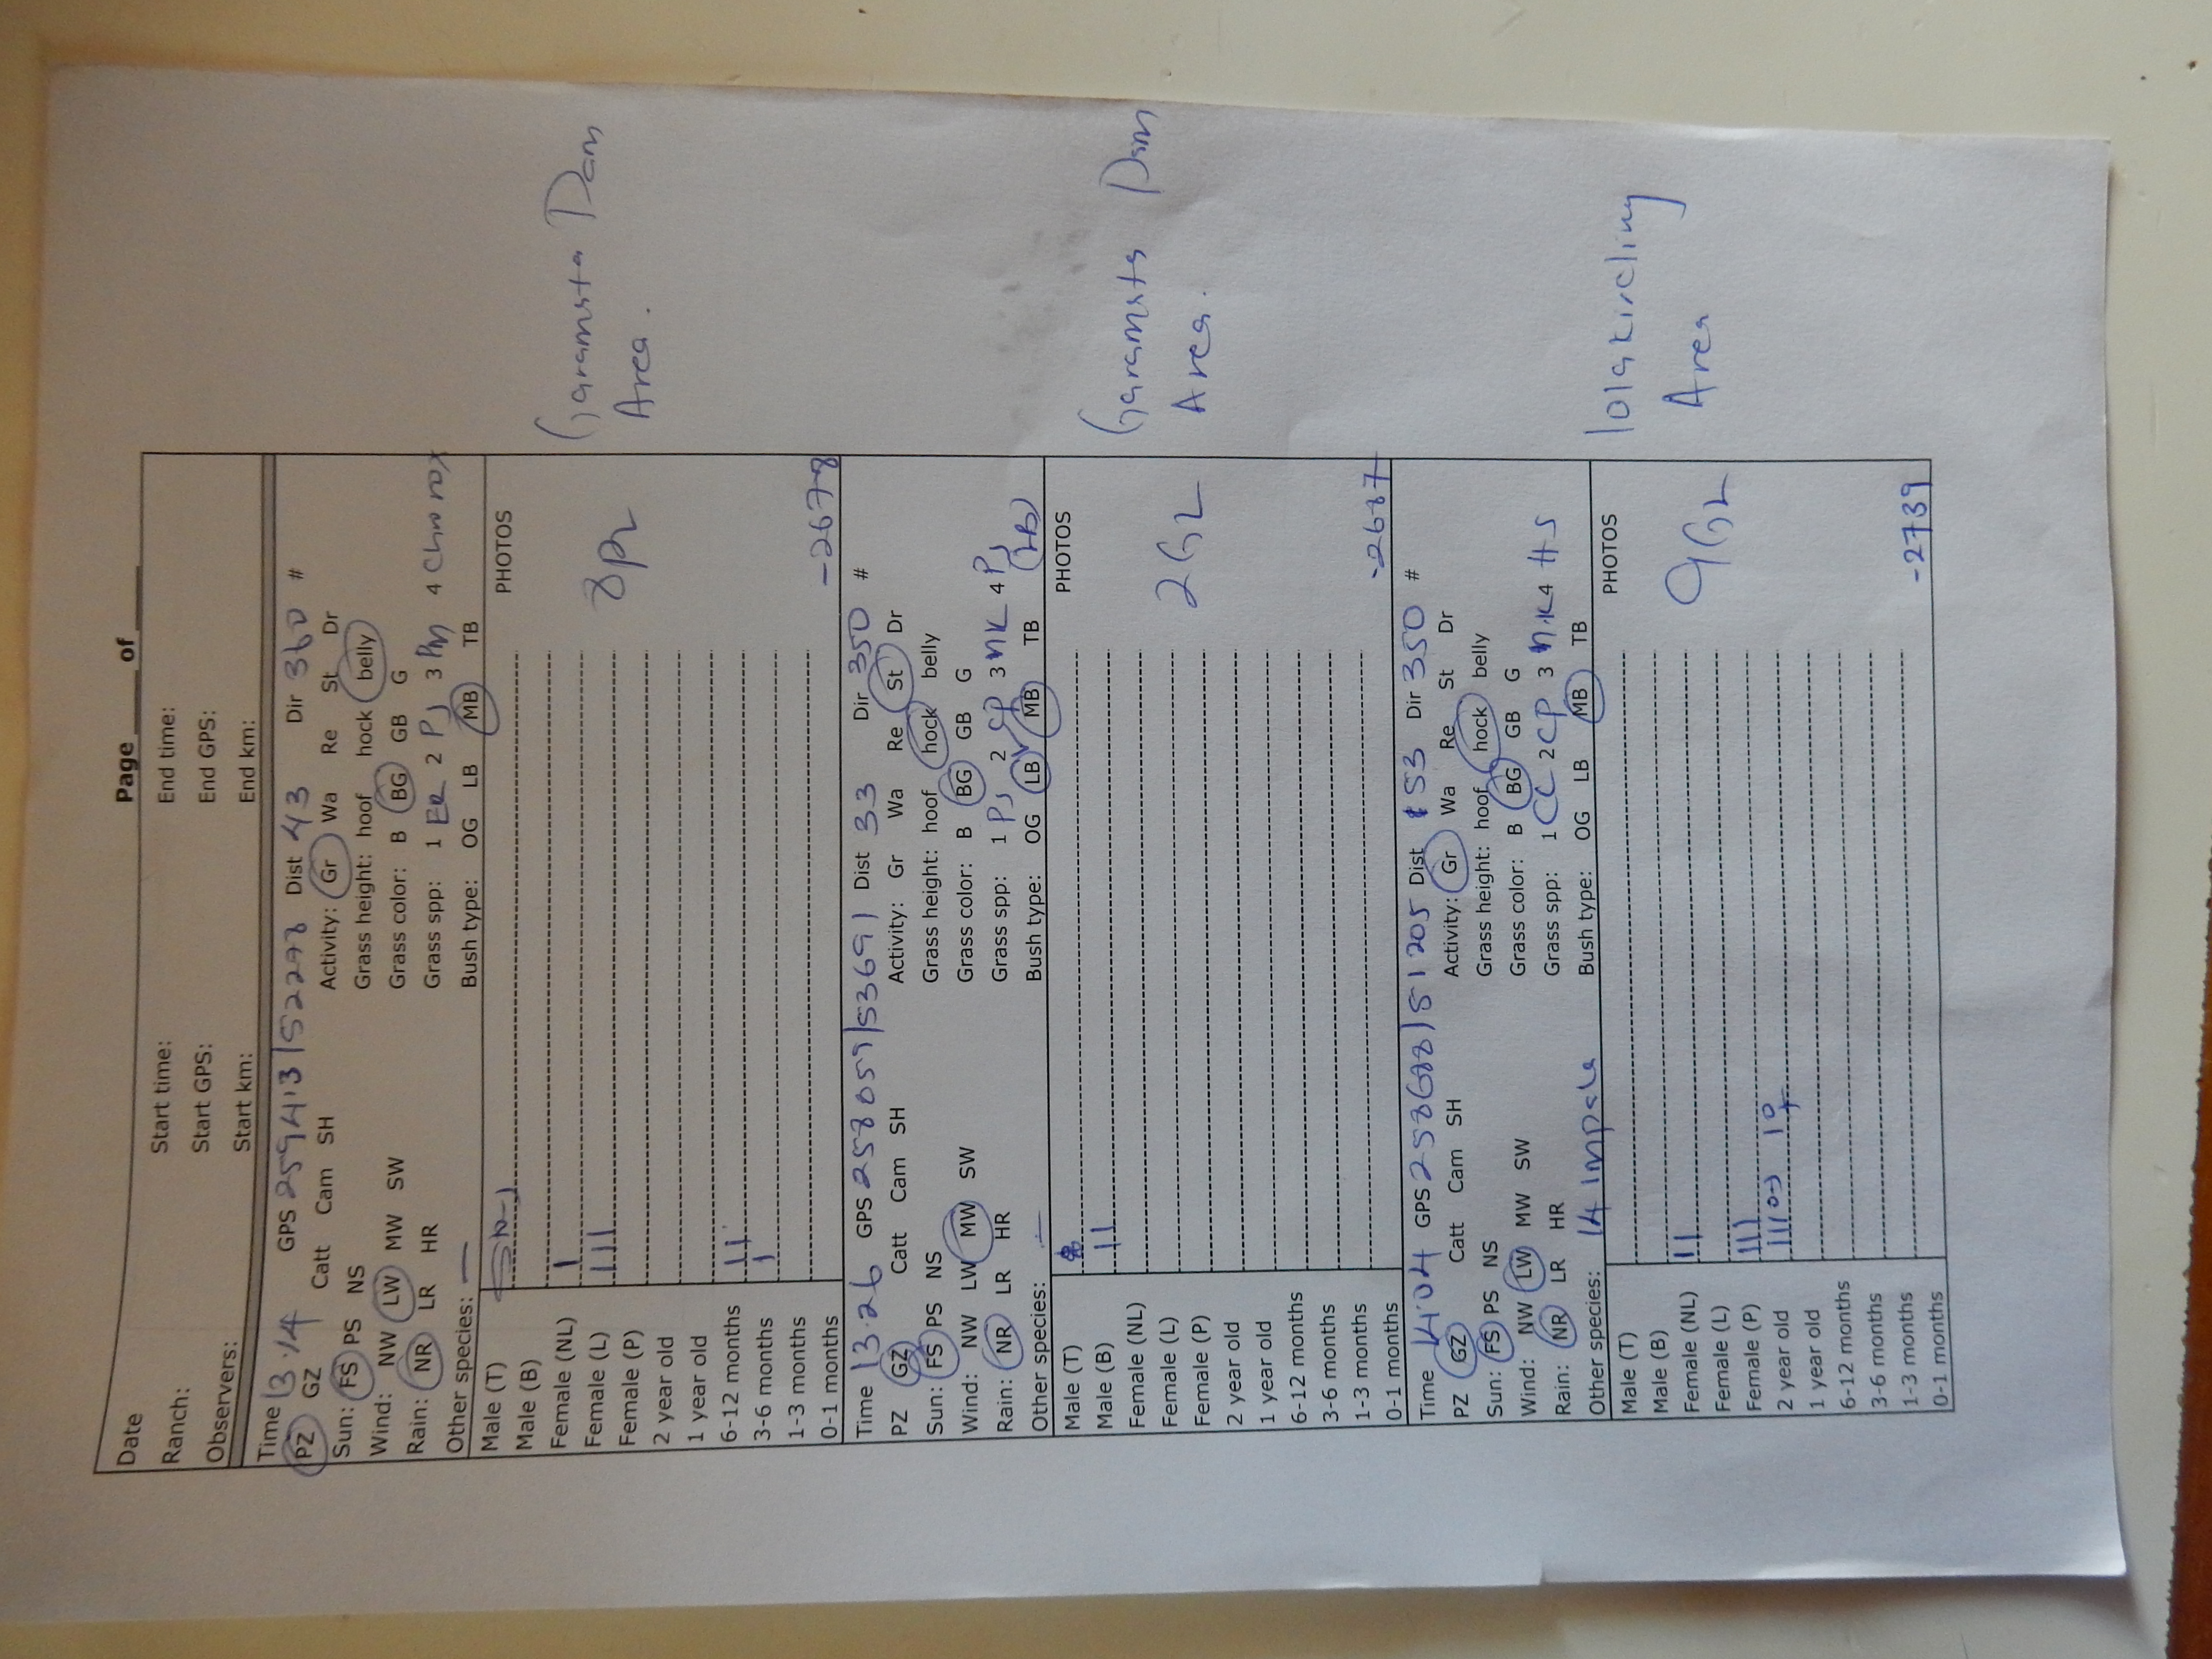 Page _____ of _____
Date
Start time: End time:
Ranch:
Start GPS: End GPS:
Observers:
Start km: End km:
Time 13.14 GPS 259413/52278 Dist 43 Dir 360 #
PZ GZ Catt Cam SH Activity: Gr Wa Re St Dr
Sun: FS PS NS Grass height: hoof hock belly
Wind: NW LW MW SW Grass color: B BG GB G
Rain: NR LR HR Grass spp: 1 ER 2 PJ 3 PM 4
Other species: — Bush type: OG LB MB TB
Male (T) PHOTOS
Male (B)
Female (NL) I
Female (L) III
Female (P)
8PZ
Garamata Dam
Area.
2 year old
1 year old
6-12 months II
3-6 months I
1-3 months
0-1 months
-2678
Time 13.26 GPS 258059/53691 Dist 33 Dir 350 #
PZ GZ Catt Cam SH Activity: Gr Wa Re St Dr
Sun: FS PS NS Grass height: hoof hock belly
Wind: NW LW MW SW Grass color: B BG GB G
Rain: NR LR HR Grass spp: 1 PJ 2 CP 3 NK 4 PJ
Other species: — Bush type: OG LB MB TB (LB)
Male (T) PHOTOS
Male (B) II
Female (NL)
Female (L)
Female (P)
2GZ
Garamata Dam
Area.
2 year old
1 year old
6-12 months
3-6 months
1-3 months
0-1 months
-2687
Time 14.04 GPS 258688/51205 Dist 53 Dir 350 #
PZ GZ Catt Cam SH Activity: Gr Wa Re St Dr
Sun: FS PS NS Grass height: hoof hock belly
Wind: NW LW MW SW Grass color: B BG GB G
Rain: NR LR HR Grass spp: 1 CC 2 CP 3 N.K 4 HS
Other species: 14 Impala Bush type: OG LB MB TB
Male (T) PHOTOS
Male (B)
Female (NL) II
Female (L)
Female (P) III
9GZ
Area
2 year old III♂ I♀
1 year old
6-12 months
3-6 months
1-3 months
0-1 months
-2739